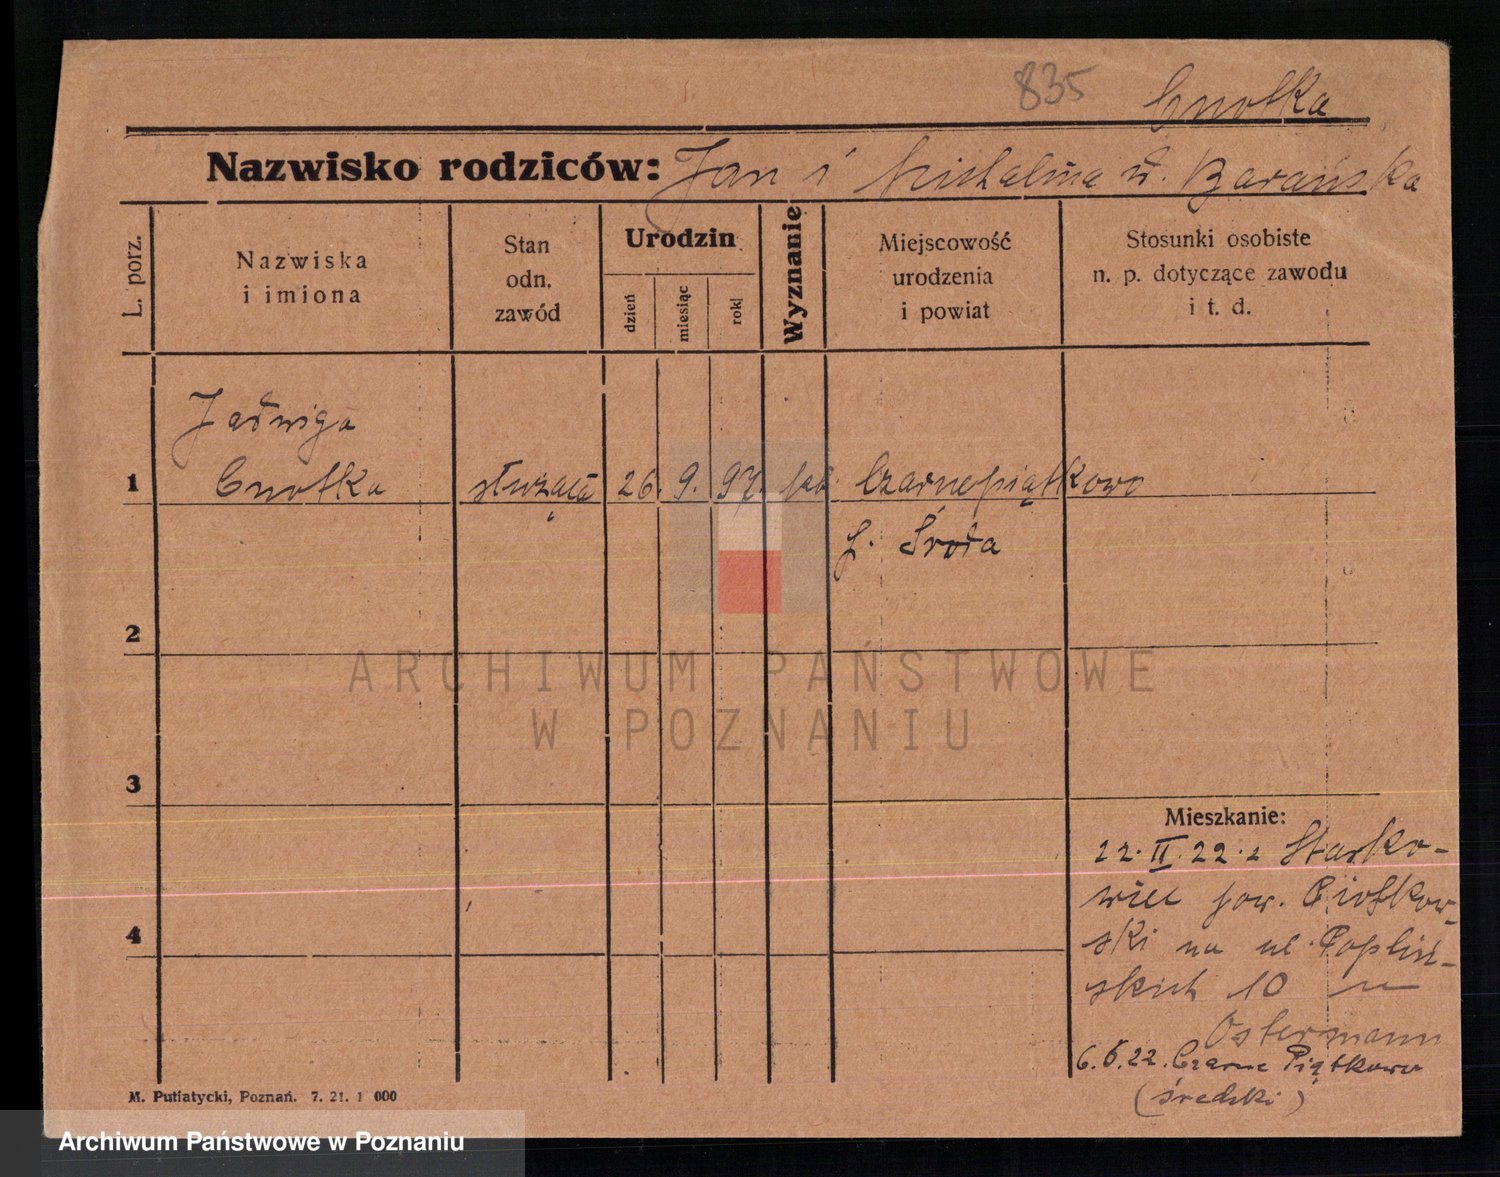 835 Cnotka
Nazwisko rodziców: Jan i Michalina ż. Barańska
L. porz.
Nazwiska
i imiona
Stan
odn.
zawód
Urodzin
dzień
miesiąc
rok
Wyznanie
Miejscowość
urodzenia
i powiat
Stosunki osobiste
n. p. dotyczące zawodu
i t. d.
Jadwiga
1 Cnotka służąca 26. 9. 97. kat. Czarnepiątkowo
p. Środa
2
ARCHIWUM PAŃSTWOWE
W POZNANIU
3
Mieszkanie:
22. II. 22. z
wiec pow. Piotkow-
4
ski na ul. Popliń-
skich 10
Ostermann
6.6.22. Czarne Piątkowo
(średzki)
M. Putiatycki, Poznań. 7. 21. 1 000
Archiwum Państwowe w Poznaniu